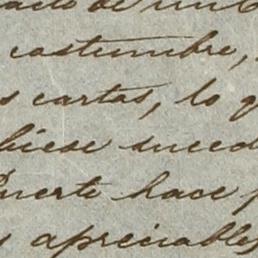 acto de
costumbre,
s cartas, lo q
biese suced
Puerto hace p
s apreciables